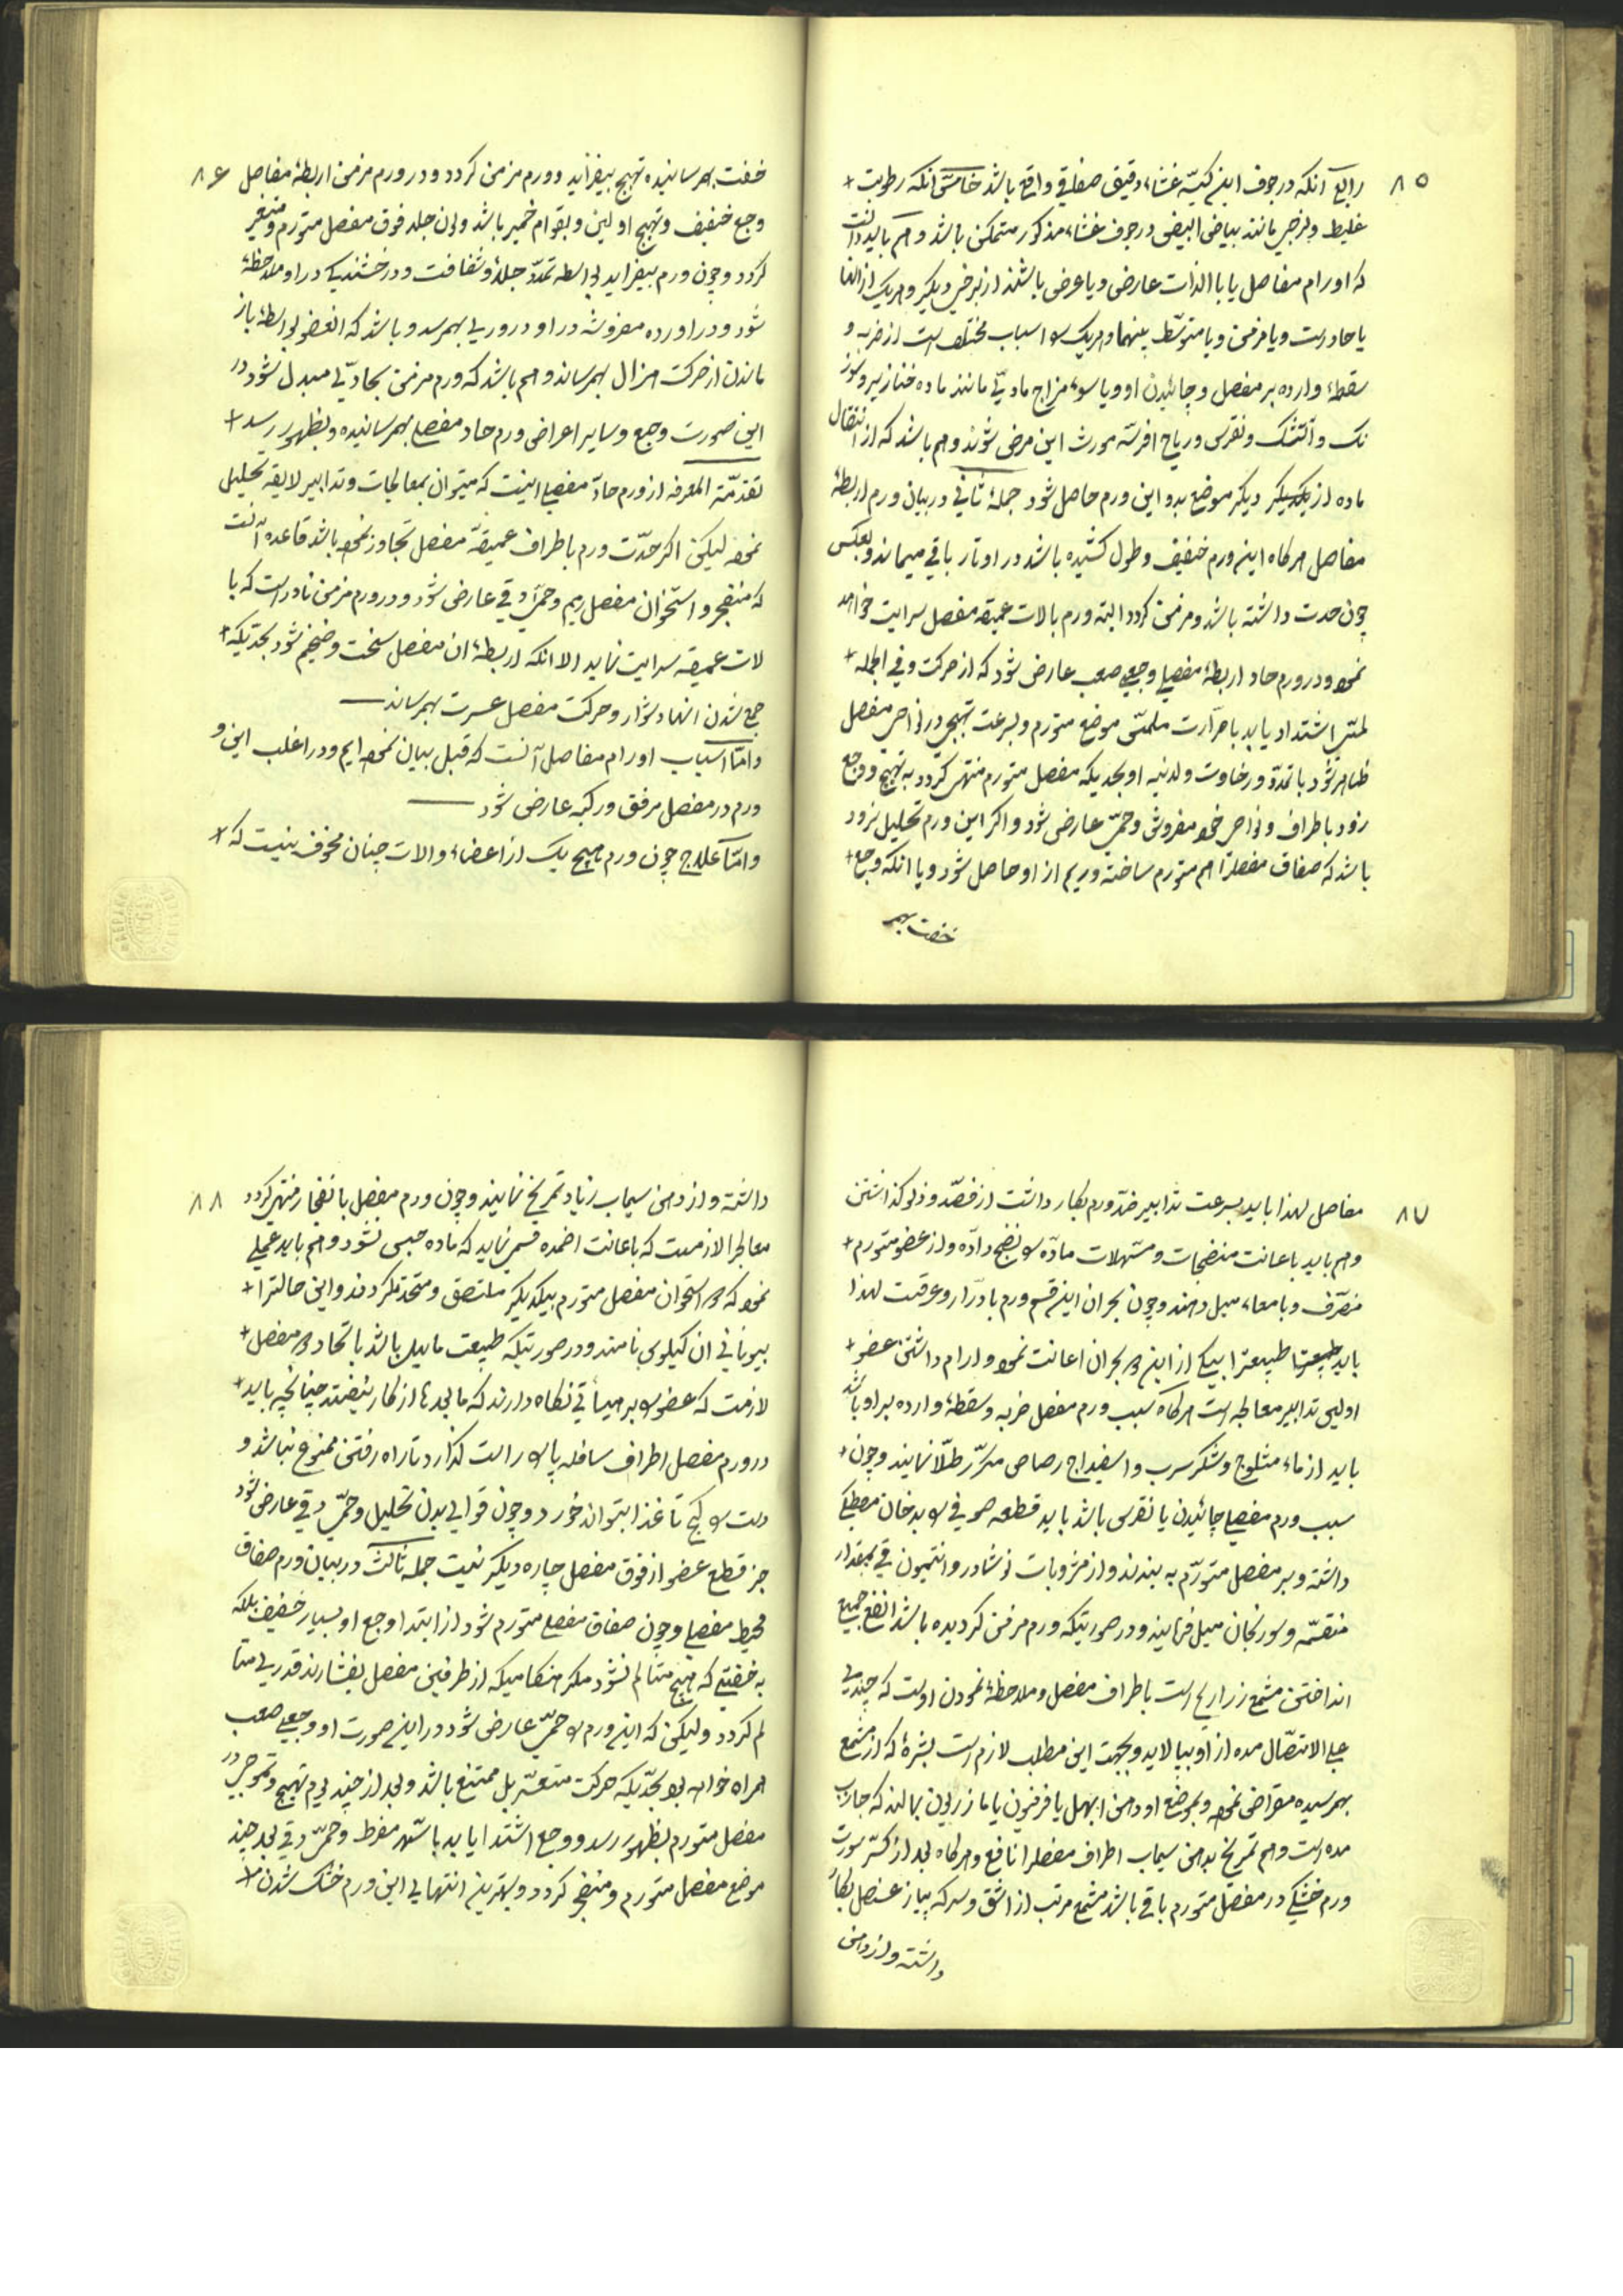 ۸۵
رابع آنکه در جوف این کیسه غشاء رقیق صفاقی واقع باشد خامس آنکه رطوبت +
غلیظ ولزجی مانند بیاض البیض در جوف غشاء مذکور متمکن باشد و هم باید دانست
که اورام مفاصل یا بالذات عارض و یا عرضی باشند از مرض دیگر و هریک از آنها
یا حاد است و یا مزمن و یا متوسط بینهما و هریک را اسباب مختلف است از ضربه و
سقطه وارده بر مفصل و چائیدن او و یا سوء مزاج مادی مانند ماده خنازیر و سوز
نک و آتشک و نقرس و ریاح افرسه مورث این مرض شوند و هم باشد که از انتقال
ماده از یکدیگر دیگر موضع بدو این ورم حاصل شود جملهٔ ثانی در بیان ورم اربطهٔ
مفاصل هرکاه این ورم خفیف و طول کشیده باشد در اوتار باقی میماند و بعکس
چون حدت داشته باشد و مزمن کردد البته ورم بالات عمیقه مفصل سرایت خواهد
نمود و در ورم حاد اربطهٔ مفصلی وجعی صعب عارض شود که از حرکت و فی الجمله +
لمسی اشتداد یابد با حرارت ملمس موضع متورم و بسرعت تهبج در نواحی مفصل
ظاهر شود با تمدد و رخاوت ولدنیه او بحدیکه مفصل متورم منتهی کردد به تهبج و وجع
زود باطراف و نواحی خود مفروش و حمی عارض شود و اکر این ورم تحلیل نرود
باشد که صفاق مفصلرا هم متورم ساخته و ریم از او حاصل شود و یا انکه وجع +
خفت بهم
۸۶
خفت بهمرسانیده تهبج بیفزاید و ورم مزمن کردد و در ورم مزمن اربطهٔ مفاصل
وجع خفیف و تهبج او لین و بقوام خمیر باشد ولون جلد فوق مفصل متورم متغیر
کردد و چون ورم بیفزاید بواسطه تمدد جلد و شفافت و درخشندیکی در او ملاحظه
شود و در اورده مفروشه در او دوروری بهمرسد و باشد که العضو بواسطهٔ باز
ماندن از حرکت هزال بهمرساند و هم باشد که ورم مزمن بحادی مبدل شود در
این صورت وجع و سایر اعراض ورم حاد مفصلی بهمرسانیده و بظهور رسد +
تقدمة المعرفه از ورم حاد مفصلی اینست که میتوان بمعالجات و تدابیر لایقه تحلیل
نمود لیکن اکر حدت ورم باطراف عمیقه مفصل تجاوز نموده باشد قاعده آنست
که منفجر و استخوان مفصل ریم و حمی دقی عارض شود و در ورم مزمن نادر است که با
لات عمیقه سرایت نماید الا انکه اربطهٔ ان مفصل سخت و ضخیم شود بحدیکه +
جمع شدن انها دشوار و حرکت مفصل عسرت بهمرساند
و اما اسباب اورام مفاصل آنست که قبل بیان نموده ایم و در اغلب این و
ورم در مفصل مرفق و رکبه عارض شود
و اما علاج چون ورم هیچ یک از اعضاء و الات چنان مخوف نیست که +
۸۷
مفاصل لهذا باید بسرعت تدابیر ضد ورم بکار داشت از فصد و زلو کذاشتن
و هم باید باعانت منضجات و مسهلات ماده را نضج داده و از عضو متورم +
منصرف و بامعاء میل دهند و چون بحران این قسم ورم بادرار و عرقست لهذا
باید طبیعترا بیکی از این دو بحران اعانت نمود و ارام داشتن عضو +
اولین تدابیر معالجه است هرکاه سبب ورم مفصل ضربه و سقطه وارده بر او باشد
باید از ماء مثلوج و شکر سرب و اسفیداج رصاص مکرر طلا نمایند و چون +
سبب ورم مفصلی چائیدن یا نقرس باشد باید قطعه صوفی را بدخان مصطکی
داشته و بر مفصل متورم به بندند و از مشروبات نوشادر و انتیمون قی بمقدار
منقسمه و سورنجان میل فرمایند و در صورتیکه ورم مزمن کردیده باشد انفع جمیع
انداختن مشمع زراریح است باطراف مفصل و ملاحظه نمودن اوست که چندی
علی الاتصال مده از او بپالاید و بجهت این مطلب لازم است بشرهٔ که از مشمع
بهمرسیده مقراض نموده و بموضع او دهن ابهل یا فرفیون یا مازریون بمالند که جاذب
مده است و هم تمریخ بدهن سیماب اطراف مفصلرا نافع و هرکاه بعد از کسر سورت
ورم خشکی در مفصل متورم باقی باشد مشمع مرتب از اشق و سرکه پیاز عنصل بکار
داشته و از دهن
۸۸
داشته و از دهن سیماب زیاد تمریخ نمایند و چون ورم مفصل بانفجار منتهی کردد
معالجرا لازمست که باعانت اضمده قسمی نماید که ماده حبس نشود و هم باید عملی
نمود که دو استخوان مفصل متورم بیکدیکر ملتصق و متحد نکردند و این حالترا +
بیونانی ان کیلوس نامند و در صورتیکه طبیعت مایل باشد باتحاد دو مفصل +
لازمست که عضو را بر هیأتی نکاه دارند که مابعدها از کار نیفتد چنانچه باید +
در ورم مفصل اطراف سافله پا را راست کذارد تا راه رفتن ممنوع نباشد و
دست را کج تا غذا بتواند خورد و چون قوای بدن تحلیل و حمی دقی عارض شود
جز قطع عضو از فوق مفصل چاره دیکر نیست جمله ثالث در بیان ورم صفاق
محیط مفصلی و چون صفاق مفصلی متورم شود از ابتدا وجع او بسیار خفیف بلکه
به خفتی که هیچ متالم نشود مکر هنکامیکه از طرفین مفصل بفشارند قدری متا
لم کردد و لیکن که این ورم را حمی عارض شود در این صورت او وجعی صعب
همراه خواهد بود بحدیکه حرکت متعسر بل ممتنع باشد و بعد از چند یوم تهبج و تموجی در
مفصل متورم بظهور رسد و وجع اشتداد یابد با سهر مفرط و حمی دقی بعد چند
موضع مفصل متورم و منفجر کردد و بهترین انتهای این ورم خشک شدن +